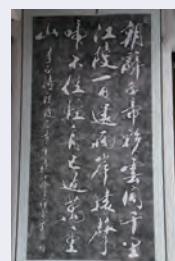 朝辭白帝彩雲間千里
江陵一日還兩岸猿聲
啼不住輕舟已過萬重
山